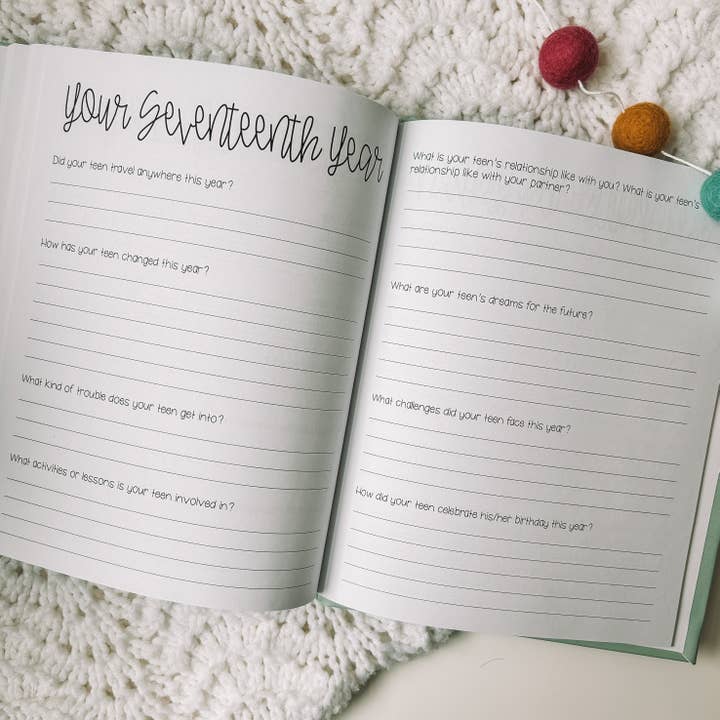 Your Seventeenth Year
Did your teen travel anywhere this year?
How has your teen changed this year?
What kind of trouble does your teen get into?
What activities or lessons is your teen involved in?
What is your teen's relationship like with you? What is your teen's
relationship like with your partner?
What are your teen's dreams for the future?
What challenges did your teen face this year?
How did your teen celebrate his/her birthday this year?